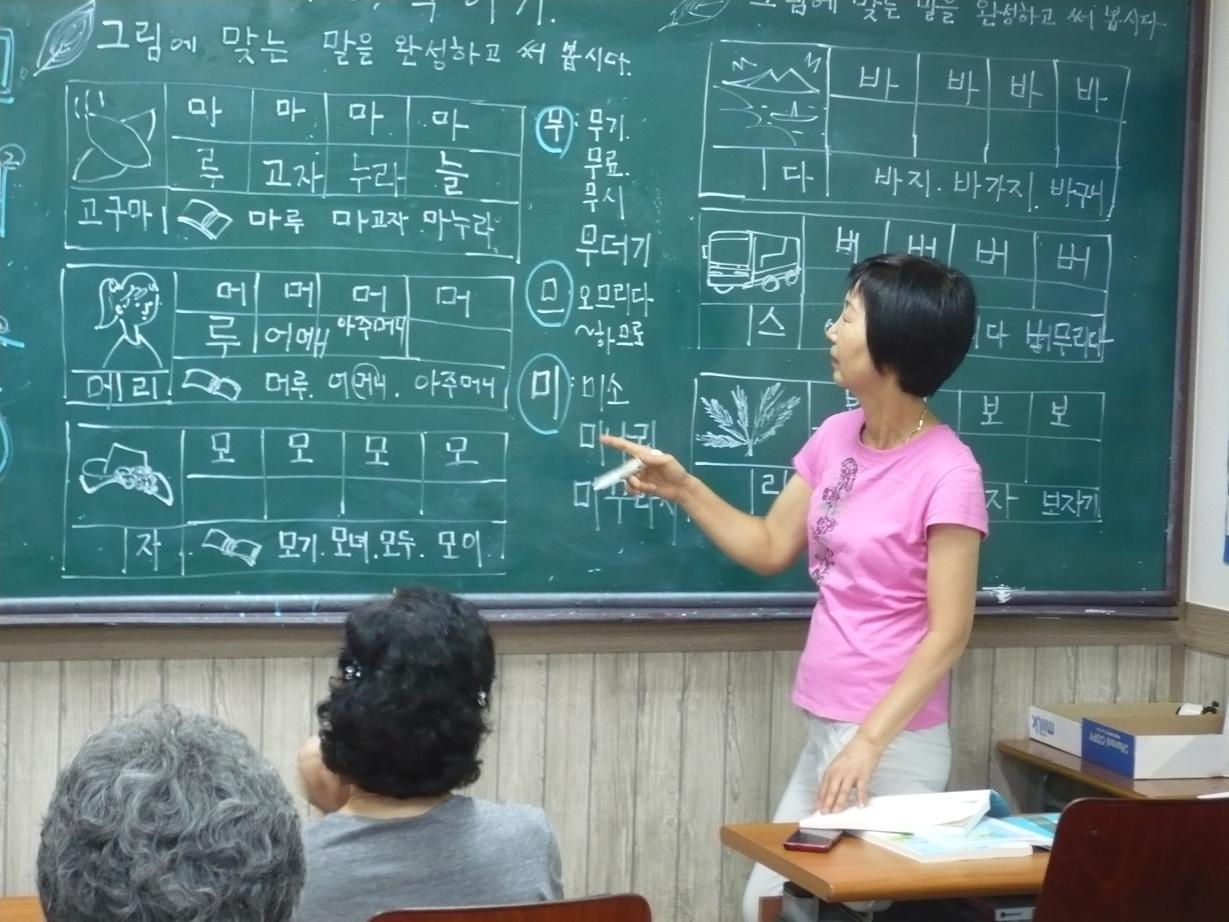 그림에 맞는 말을 완성하고 써 봅시다.
마 마 마 마
루 고자 누라 늘
고구마 마루 마고자 마누라
머 머 머 머
루 어머니 아주머니
메리 머루. 어머니. 아주머니
모 모 모 모
자 모기. 모녀. 모두. 모이
무: 무기.
무료.
무시
무더기
므 오므리다
~하므로
미: 미소
미나리
그림에 맞는 말을 완성하고 써 봅시다
바 바 바 바
다 바지. 바가지. 바구니
버 버 버 버
스 다 버무리다
보 보
리 자 보자기
milk
COPY